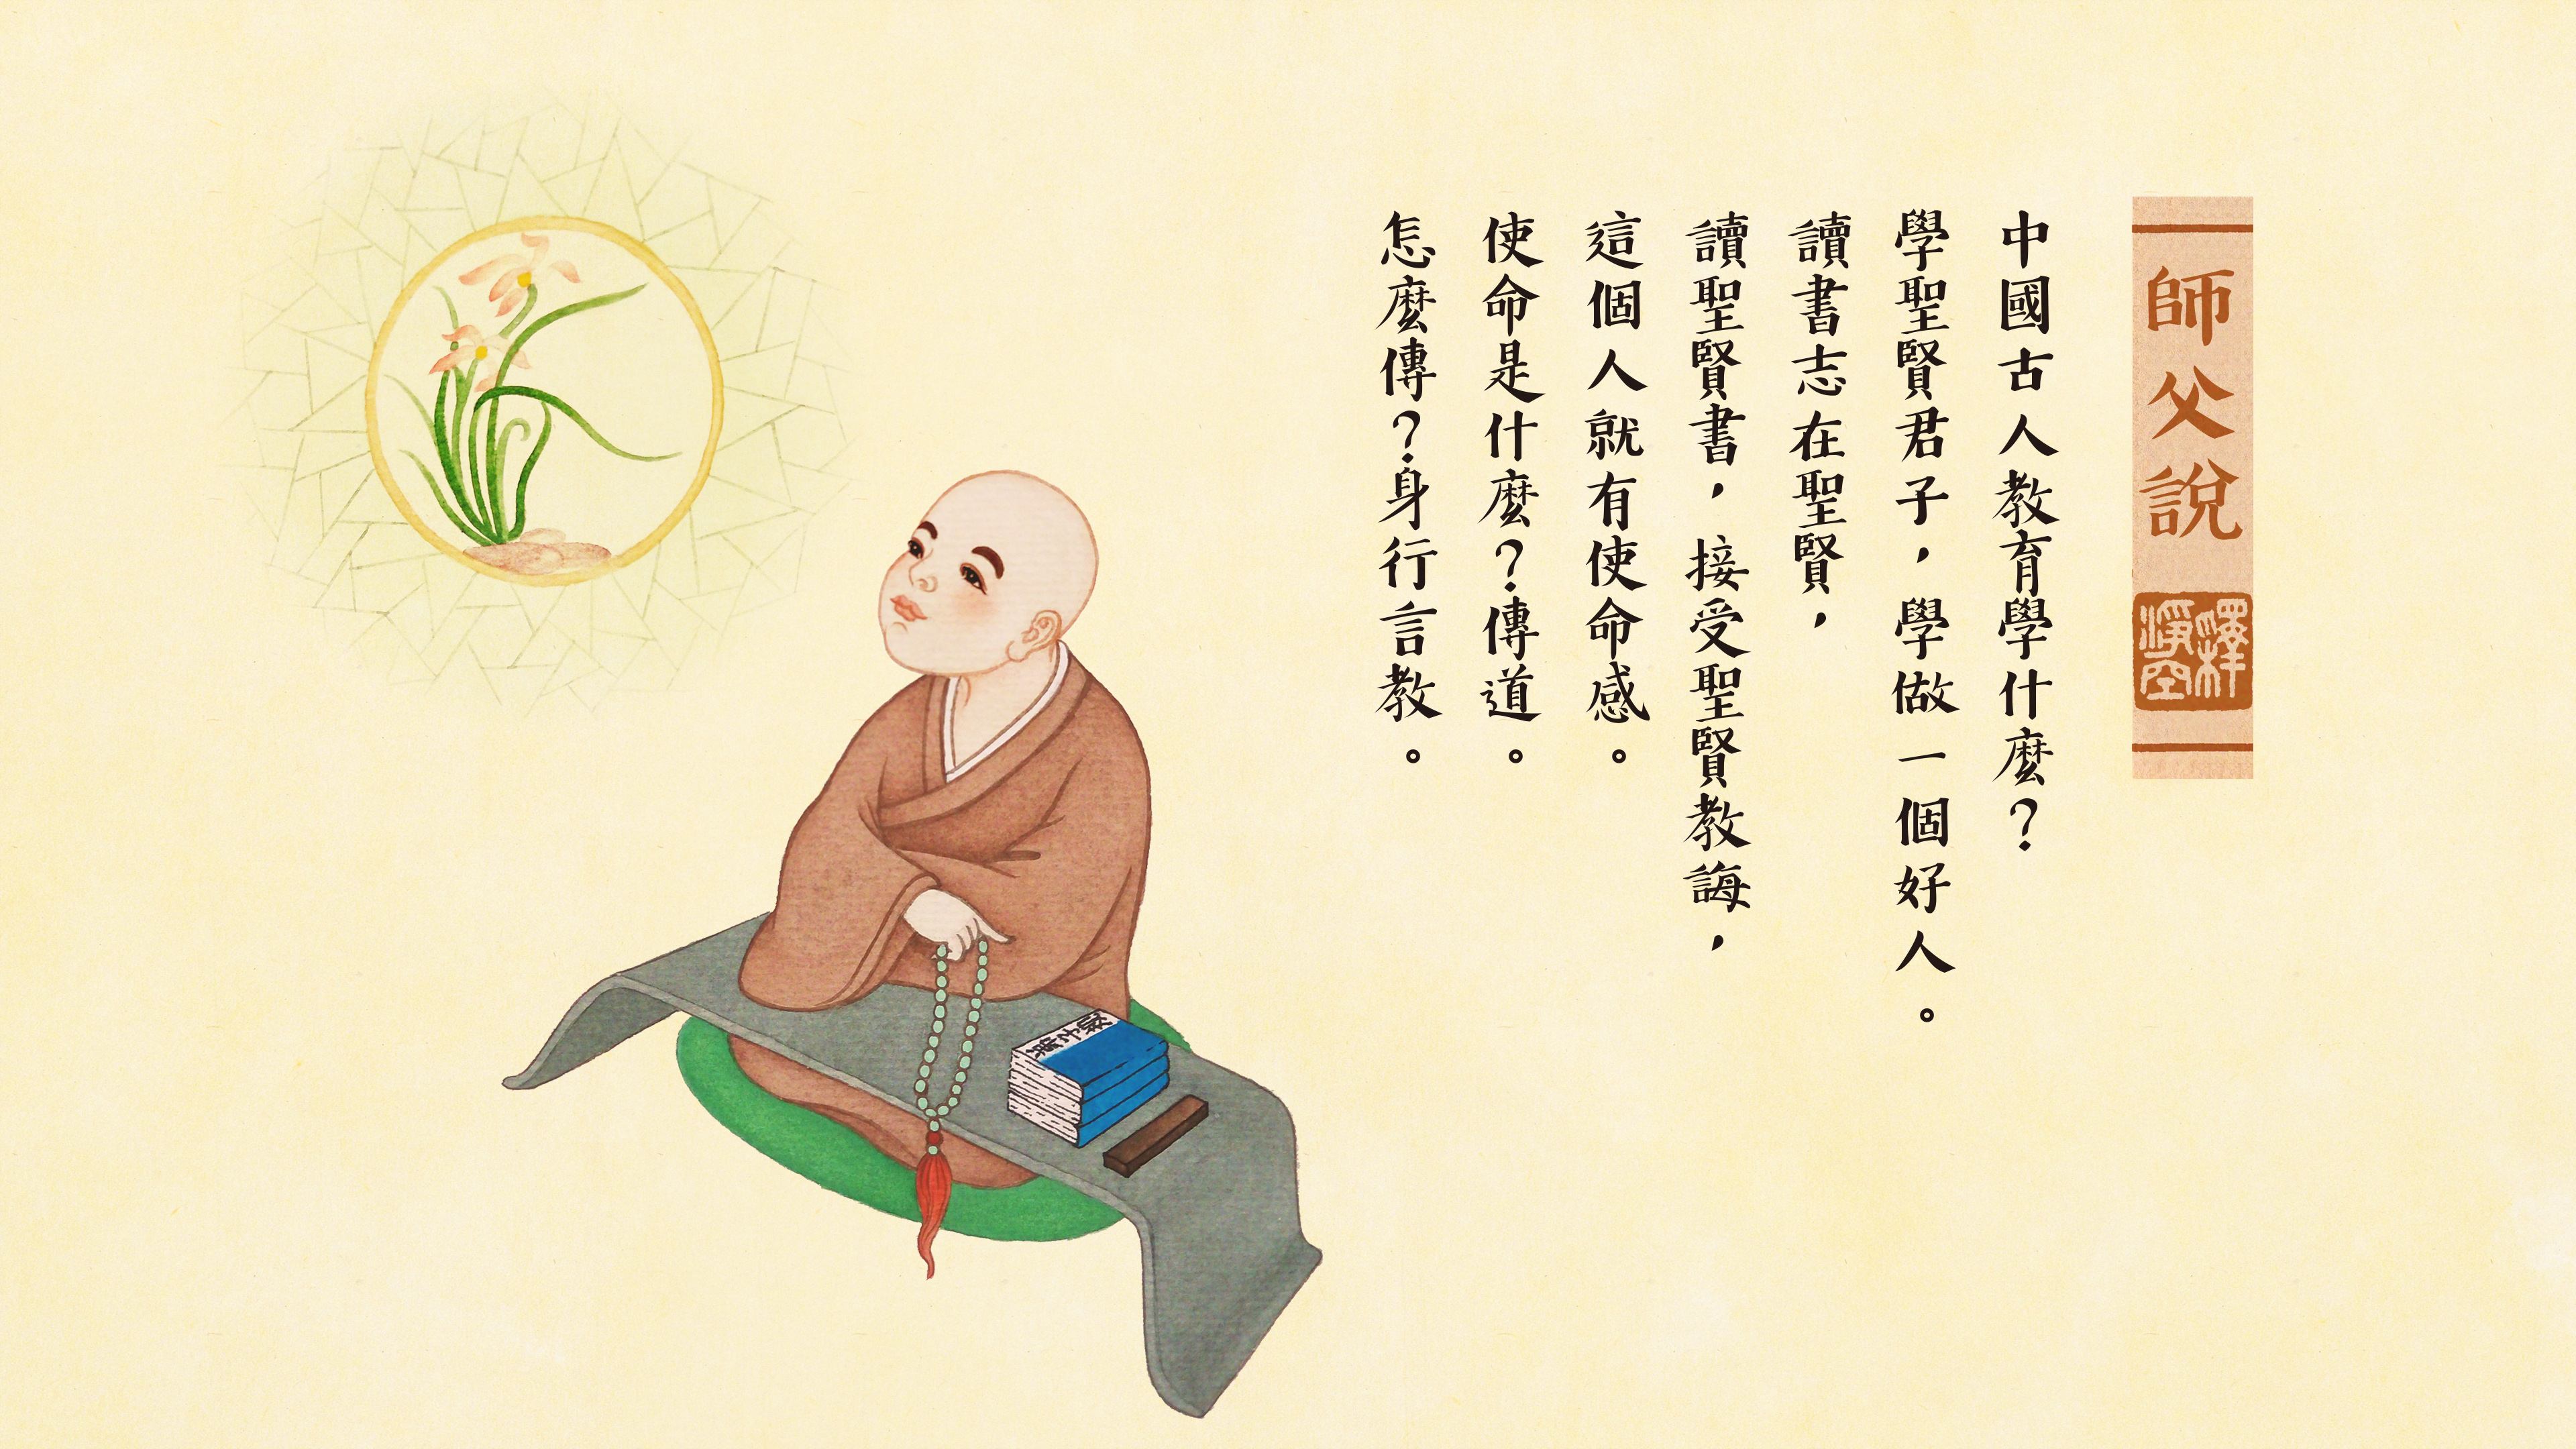 師父說
釋淨空
中國古人教育學什麼？
學聖賢君子，學做一個好人。
讀書志在聖賢，
讀聖賢書，接受聖賢教誨，
這個人就有使命感。
使命是什麼？傳道。
怎麼傳？身行言教。